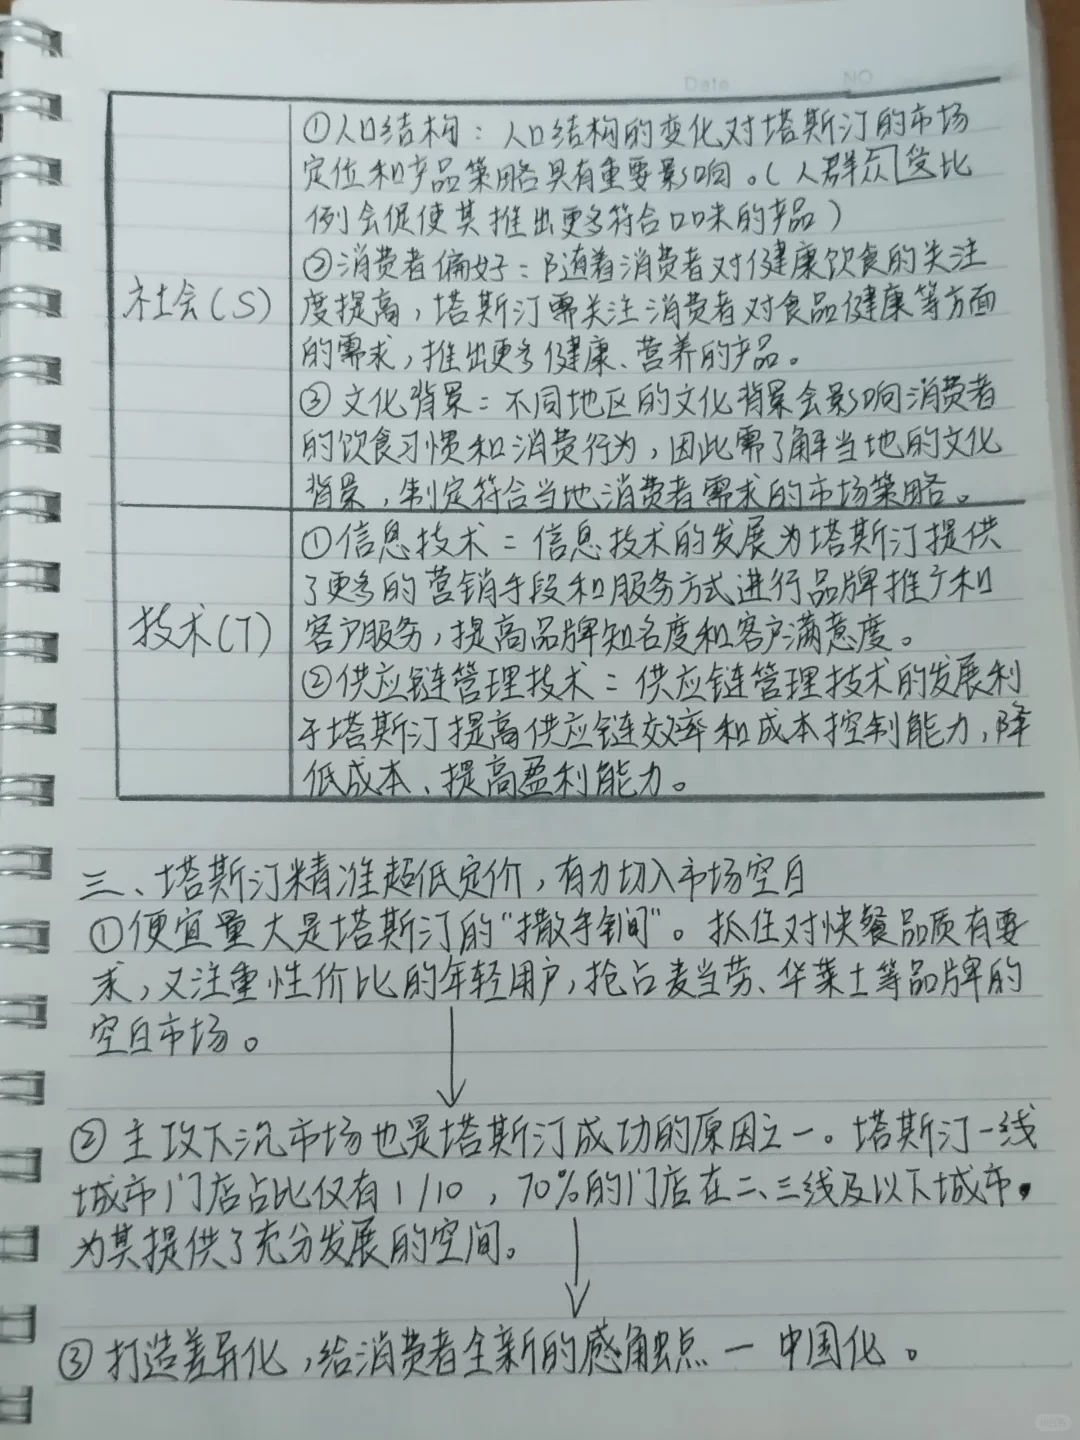 Date NO
①人口结构：人口结构的变化对塔斯汀的市场
定位和产品策略具有重要影响。（人群
例会促使其推出更多符合口味的产品）
②消费者偏好：随着消费者对健康饮食的关注
社会(S)
度提高，塔斯汀需关注消费者对食品健康等方面
的需求，推出更多健康、营养的产品。
③文化背景：不同地区的文化背景会影响消费者
的饮食习惯和消费行为，因此需了解当地的文化
背景，制定符合当地消费者需求的市场策略。
①信息技术：信息技术的发展为塔斯汀提供
了更多的营销手段和服务方式进行品牌推广和
技术(T)
客户服务，提高品牌知名度和客户满意度。
②供应链管理技术：供应链管理技术的发展利
于塔斯汀提高供应链效率和成本控制能力，降
低成本、提高盈利能力。
三、塔斯汀精准超低定价，有力切入市场空白
①便宜量大是塔斯汀的“撒手锏”。抓住对快餐品质有要
求，又注重性价比的年轻用户，抢占麦当劳、华莱士等品牌的
空白市场。
②主攻下沉市场也是塔斯汀成功的原因之一。塔斯汀一线
城市门店占比仅有1/10，70%的门店在二、三线及以下城市.
为其提供了充分发展的空间。
③打造差异化，给消费者全新的感触点一中国化。